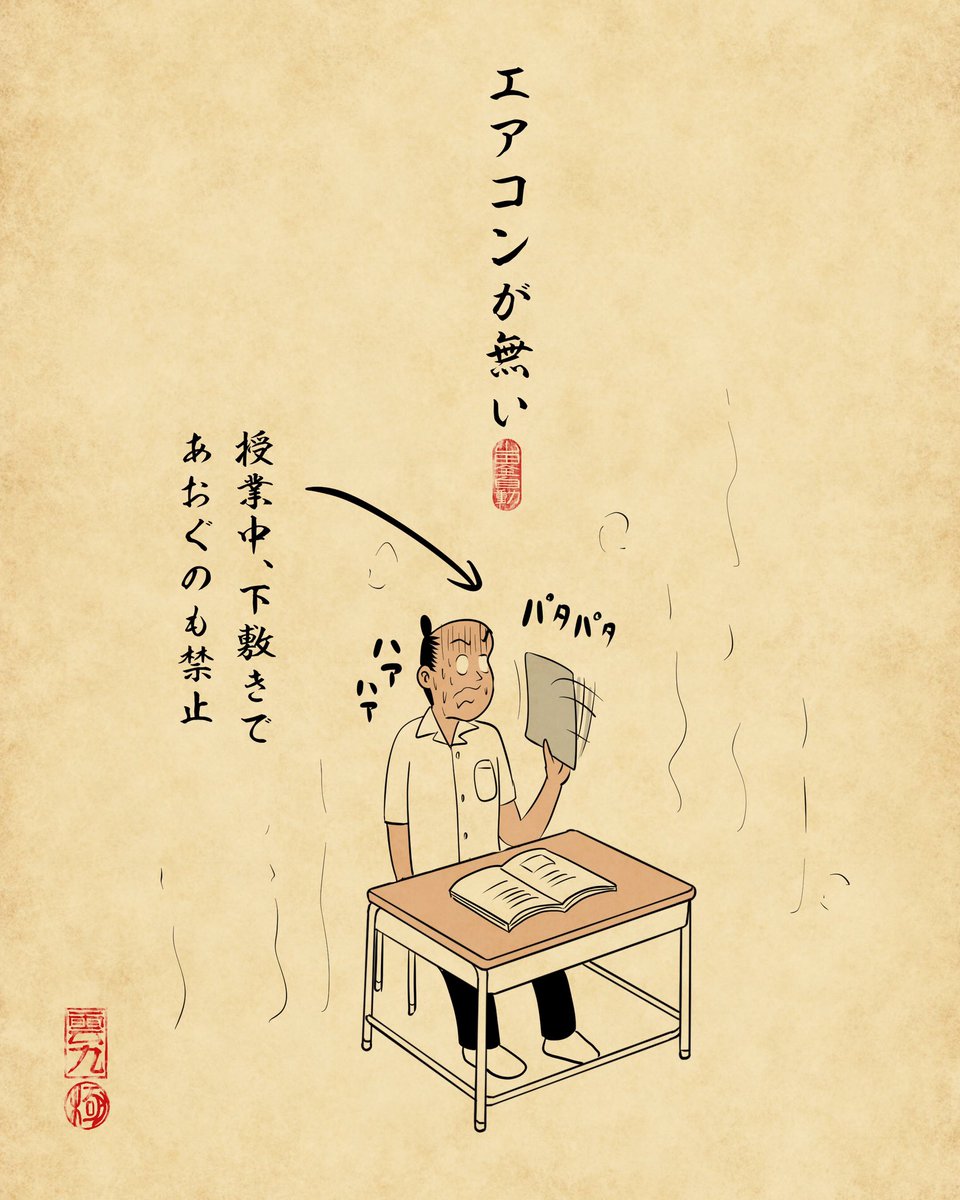 エアコンが無い
授業中、下敷きで
あおぐのも禁止
パタパタ
ハァ
ハァ